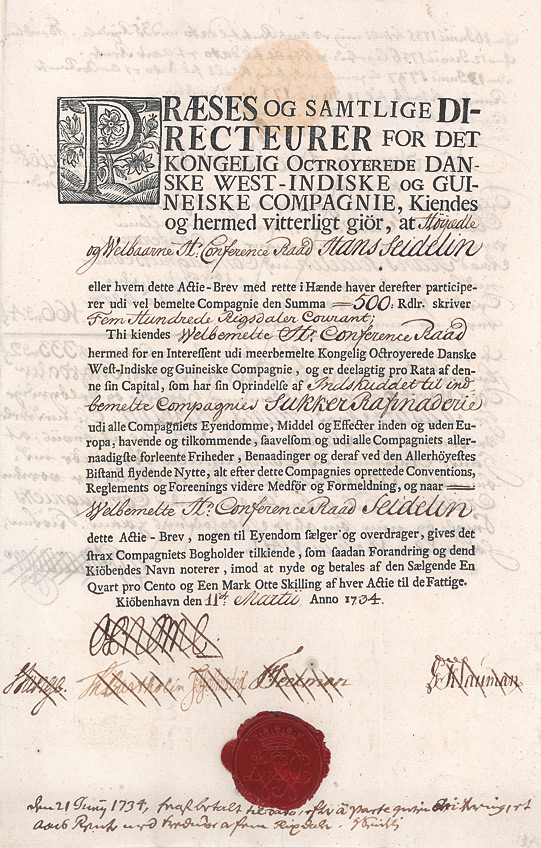 PRÆSES OG SAMTLIGE DI-
RECTEURER FOR DET
KONGELIG OCTROYEREDE DAN-
SKE WEST-INDISKE OG GUI-
NEISKE COMPAGNIE, Kiendes
og hermed vitterligt giör, at Höiædle
og Welbaarne Hr. Conference Raad Hans Seidelin
eller hvem dette Actie-Brev med rette i Hænde haver derefter participe-
rer udi vel bemelte Compagnie den Summa 500: Rdlr. skriver
Fem Hundrede Rigsdaler Courant;
Thi kiendes Welbemelte Hr. Conference Raad
hermed for en Interessent udi meerbemelte Kongelig Octroyerede Danske
West-Indiske og Guineiske Compagnie, og er deelagtig pro Rata af den-
ne sin Capital, som har sin Oprindelse af Indskuddet til ind
bemelte Compagnies Sukker Rafinaderie
udi alle Compagniets Eyendomme, Middel og Effecter inden og uden Eu-
ropa, havende og tilkommende, saavelsom og udi alle Compagniets aller-
naadigste forleente Friheder, Benaadinger og deraf ved den Allerhöyestes
Bistand flydende Nytte, alt efter dette Compagnies oprettede Conventions,
Reglements og Foreenings videre Medför og Formeldning, og naar
Welbemelte Hr. Conference Raad Seidelin
dette Actie-Brev, nogen til Eyendom sælger og overdrager, gives det
strax Compagniets Bogholder tilkiende, som saadan Forandring og dend
Kiöbendes Navn noterer, imod at nyde og betales af den Sælgende En
Qvart pro Cento og Een Mark Otte Skilling af hver Actie til de Fattige.
Kiöbenhavn den 11te Martii Anno 1734.
den 21 Junij 1734,